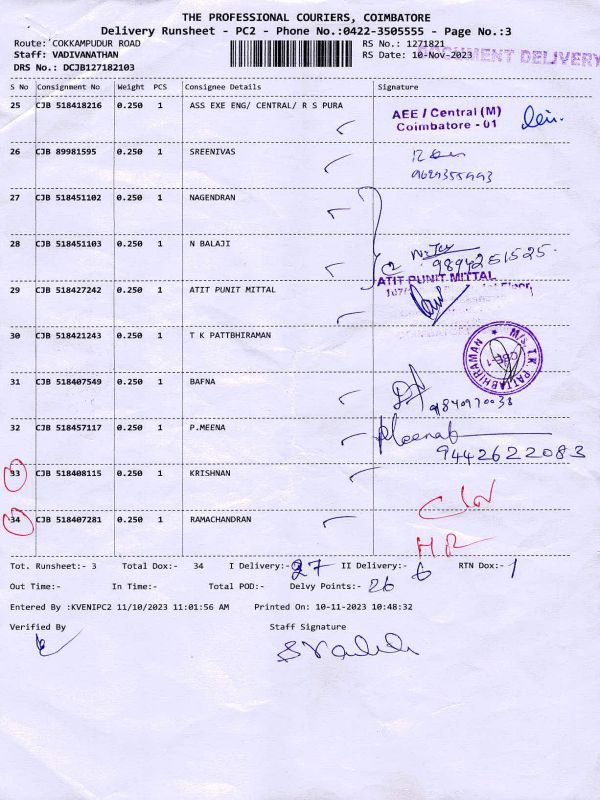 THE PROFESSIONAL COURIERS, COIMBATORE
Delivery Runsheet - PC2 - Phone No.:0422-3505555 - Page No.:3
Route: COKKAMPUDUR ROAD RS No.: 1271821
DOCUMENT DELIVERY
Staff: VADIVANATHAN RS Date: 10-Nov-2023
DRS No.: DCJB127182103
S No Consignment No Weight PCS Consignee Details Signature
25 CJB 518418216 0.250 1 ASS EXE ENG/ CENTRAL/ R S PURA
AEE / Central (M)
Coimbatore - 01
26 CJB 89981595 0.250 1 SREENIVAS
27 CJB 518451102 0.250 1 NAGENDRAN
28 CJB 518451103 0.250 1 N BALAJI
9894251525.
ATIT PUNIT MITTAL
29 CJB 518427242 0.250 1 ATIT PUNIT MITTAL
30 CJB 518421243 0.250 1 T K PATTBHIRAMAN
M/S. T.K. PATTABHIRAMAN
CBE-1
31 CJB 518407549 0.250 1 BAFNA
9840970038
32 CJB 518457117 0.250 1 P.MEENA
PMeena
9442622083
33 CJB 518408115 0.250 1 KRISHNAN
34 CJB 518407281 0.250 1 RAMACHANDRAN
Tot. Runsheet:- 3 Total Dox:- 34 I Delivery:- 27 II Delivery:- 6 RTN Dox:- 1
Out Time:- In Time:- Total POD:- Delvy Points:- 26
Entered By :KVENIPC2 11/10/2023 11:01:56 AM Printed On: 10-11-2023 10:48:32
Verified By Staff Signature